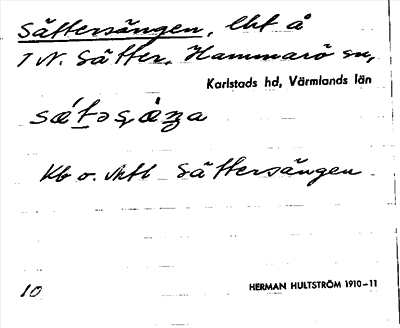 Sättersängen, lht å
1 N. Sätter, Hammarö sn,
Karlstads hd, Värmlands län
Kb o. Sättersängen
10 HERMAN HULTSTRÖM 1910-11